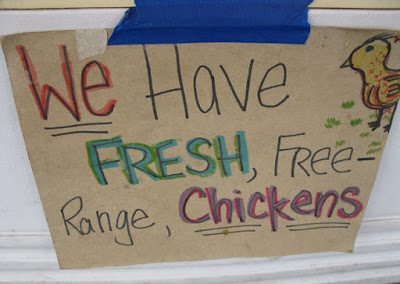 We Have
FRESH, Free-
Range, Chickens